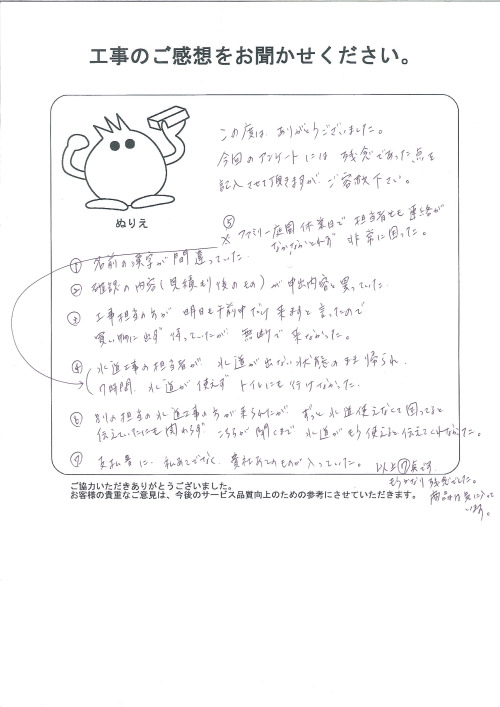 工事のご感想をお聞かせください。
この度は、ありがとうございました。
今回のアンケートには残念であった点を
記入させて頂きますが、ご容赦下さい。
ぬりえ
⑤
× ファミリー庭園休業日で担当者とも連絡が
なかなかとれず 非常に困った。
① 名前の漢字が間違っていた。
② 確認の内容(見積もり後のもの)が申出内容と異っていた。
③ 工事担当の方が 明日も午前中だけ来ますと言ったので
買い物に出ず 待っていたが 無断で来なかった。
④ 水道工事の担当者が、水道が出ない状態のまま帰られ、
7時間、水道が使えず トイレにも行けなかった。
⑥ 別の担当の水道工事の方が来られたが ずっと水道使えなくて困ってると
伝えていたにも関わらず こちらが聞くまで 水道がもう使えると伝えてくれなかった。
⑦ 支払書に、私あてでなく、貴社あてのものが入っていた。
以上⑦点です
もうかなり残念でした。
商品は気に入って
います。
ご協力いただきありがとうございました。
お客様の貴重なご意見は、今後のサービス品質向上のための参考にさせていただきます。